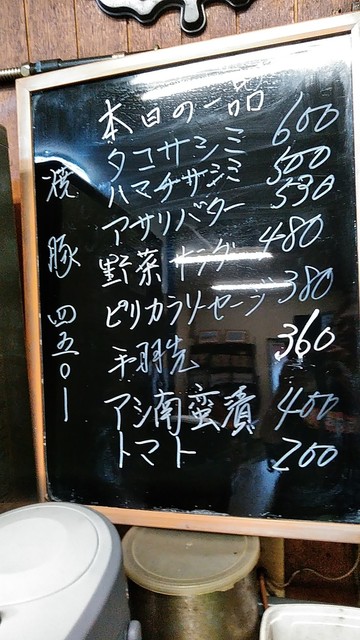 本日の一品
タコサシミ 600
ハマチサシミ 500
アサリバター 530
野菜 480
ピリカラソセージ 380
手羽先 360
アジ南蛮漬 400
トマト 200
焼豚 四五〇ー